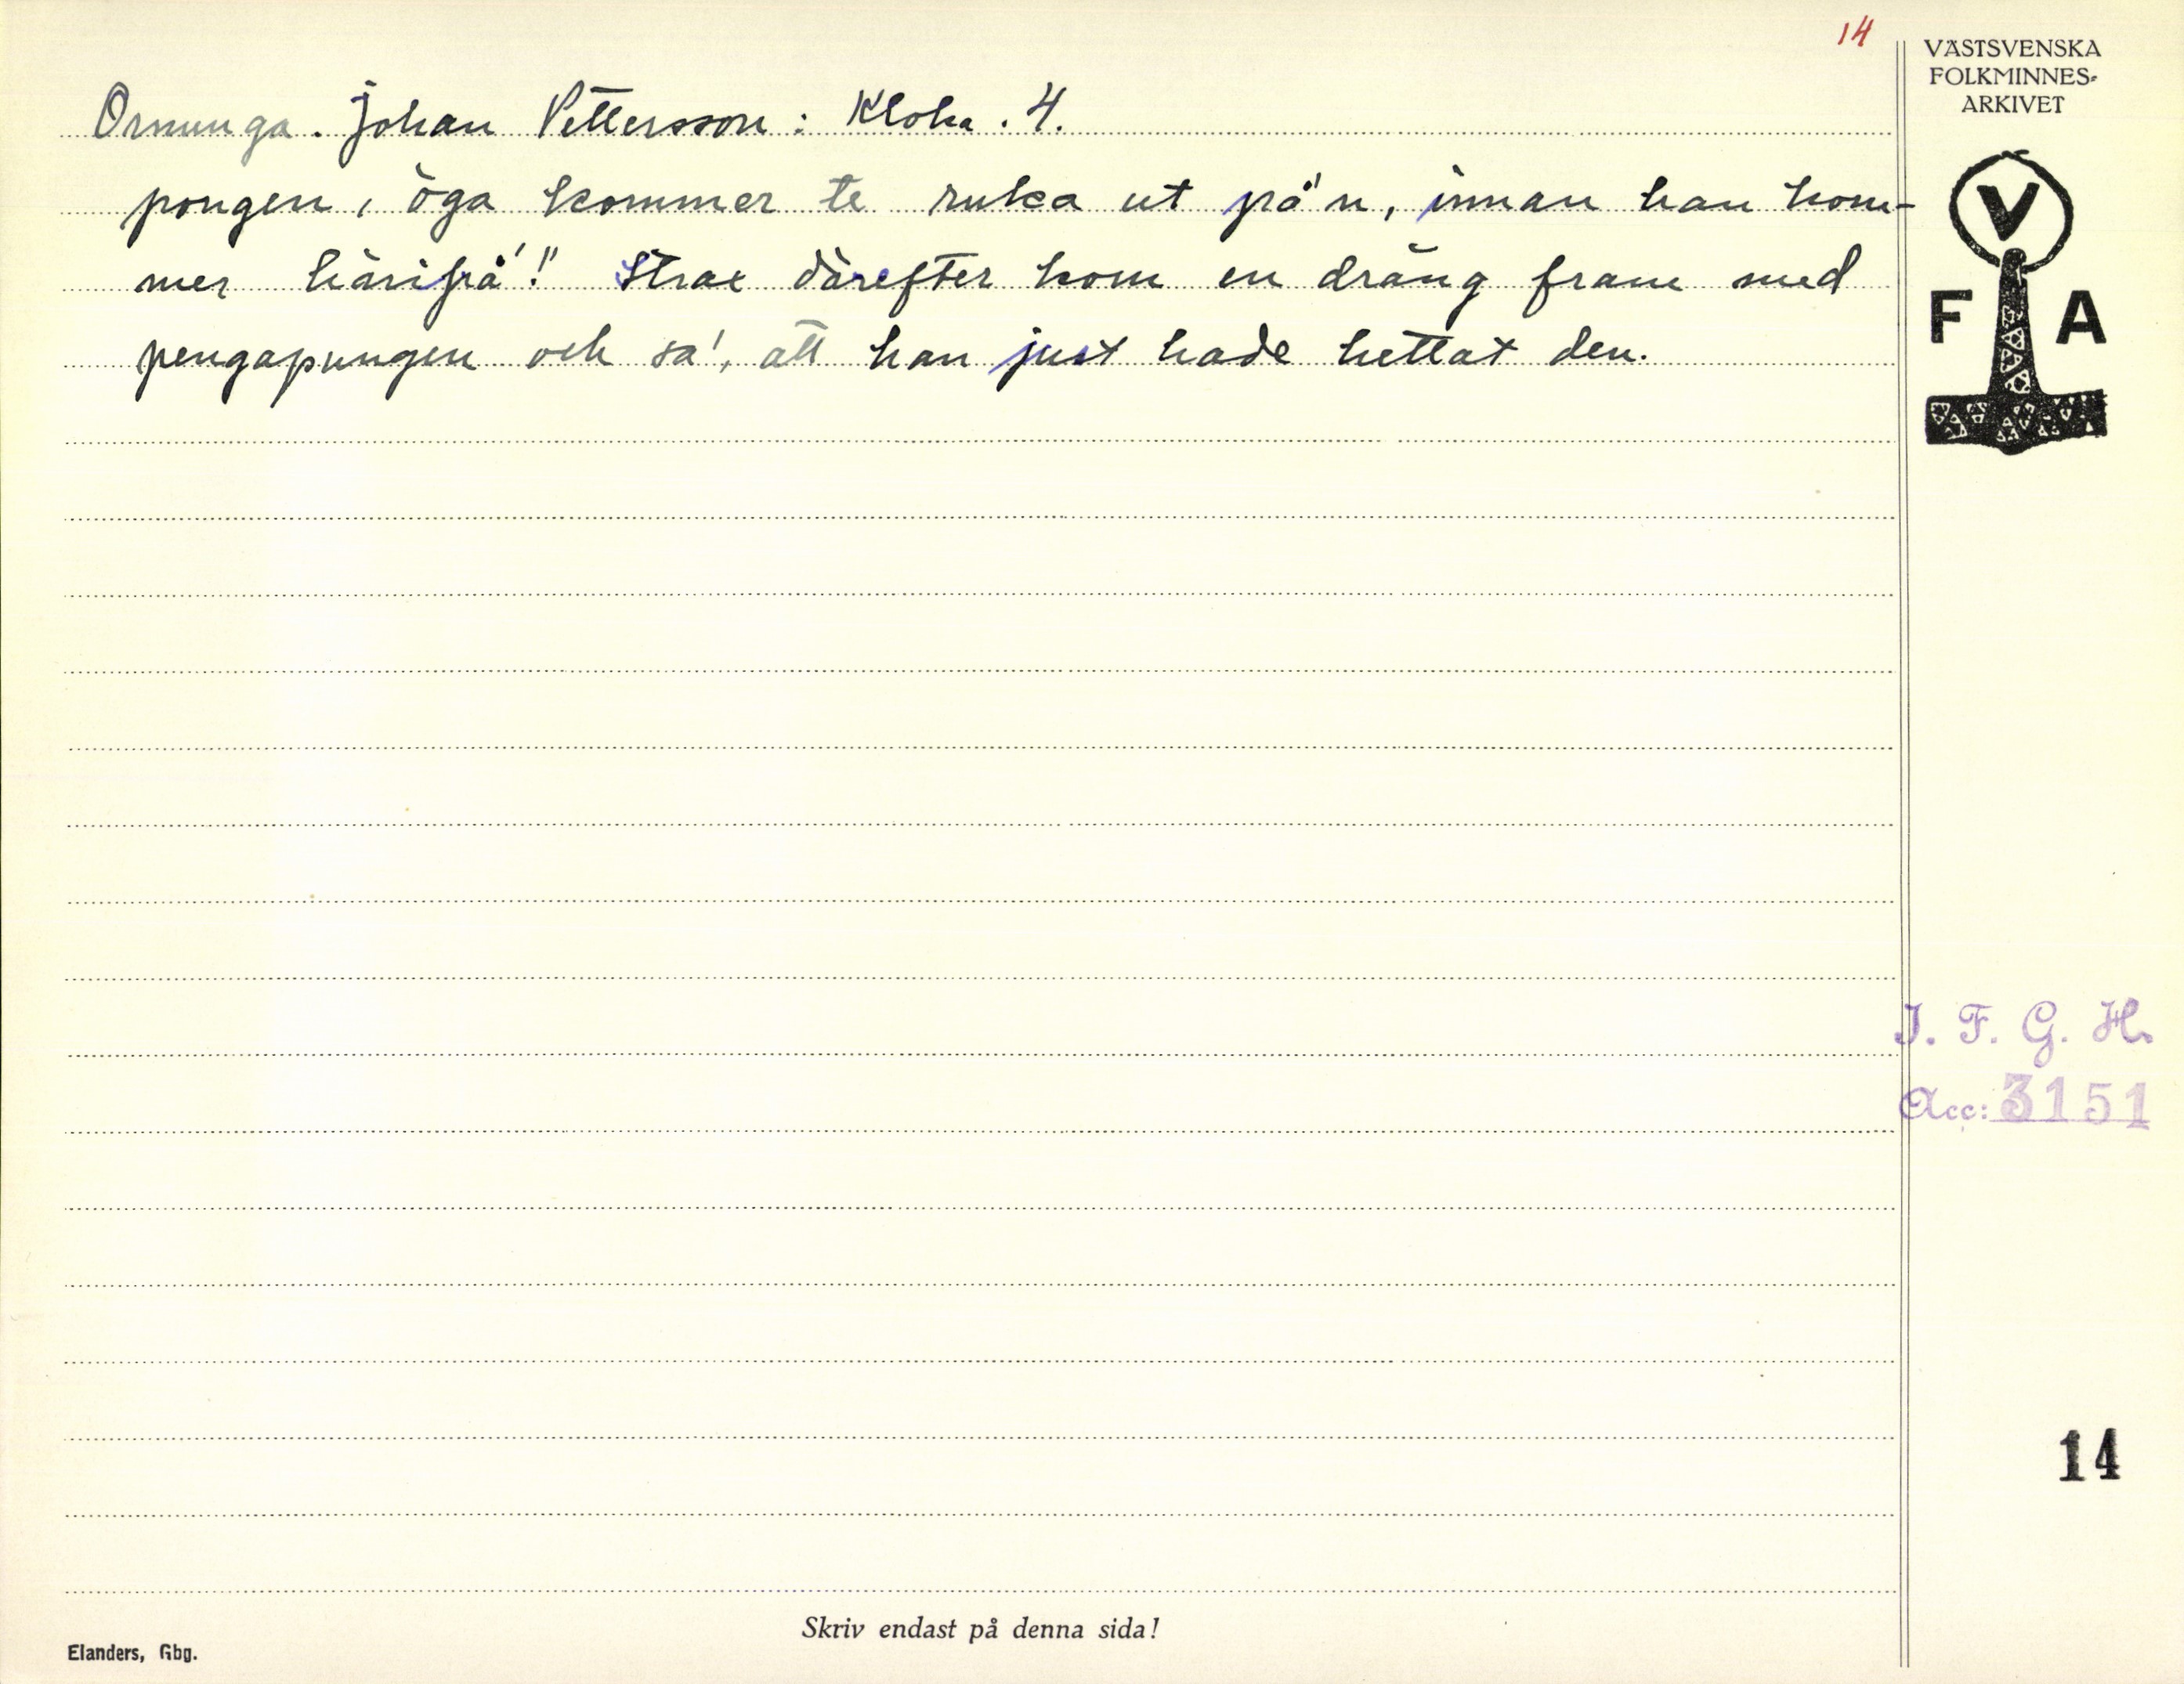 14
VÄSTSVENSKA
FOLKMINNES-
ARKIVET
Ornunga. Johan Pettersson: Kloka. 4.
pongen, öga kommer te ruka ut på'n, innan han kom-
mer härifrå'!" Strax därefter kom en dräng fram med
pengapungen och sa', att han just hade hettat den.
V
F A
I. F. G. H.
Acc: 3151
14
Skriv endast på denna sida!
Elanders, Gbg.